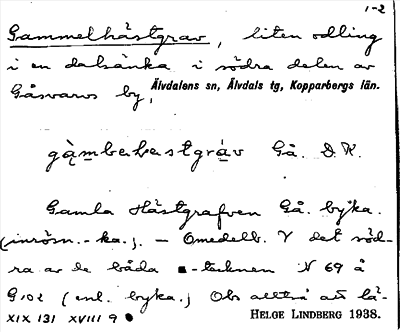 1-2
Gammelhästgrav, liten odling
i en dalsänka i södra delen av
Gåsvarvs by, Älvdalens sn, Älvdals tg, Kopparbergs län.
gàmbehestgráv Gå. D.K.
Gamla Hästgrafven Gå. byka.
(inrösn.-ka.). – Omedelb. V det söd-
ra av de båda -tecknen N 69 å
G102 (enl. byka.) Obs alltså att lä-
XIX 131 XVIII 9 HELGE LINDBERG 1938.